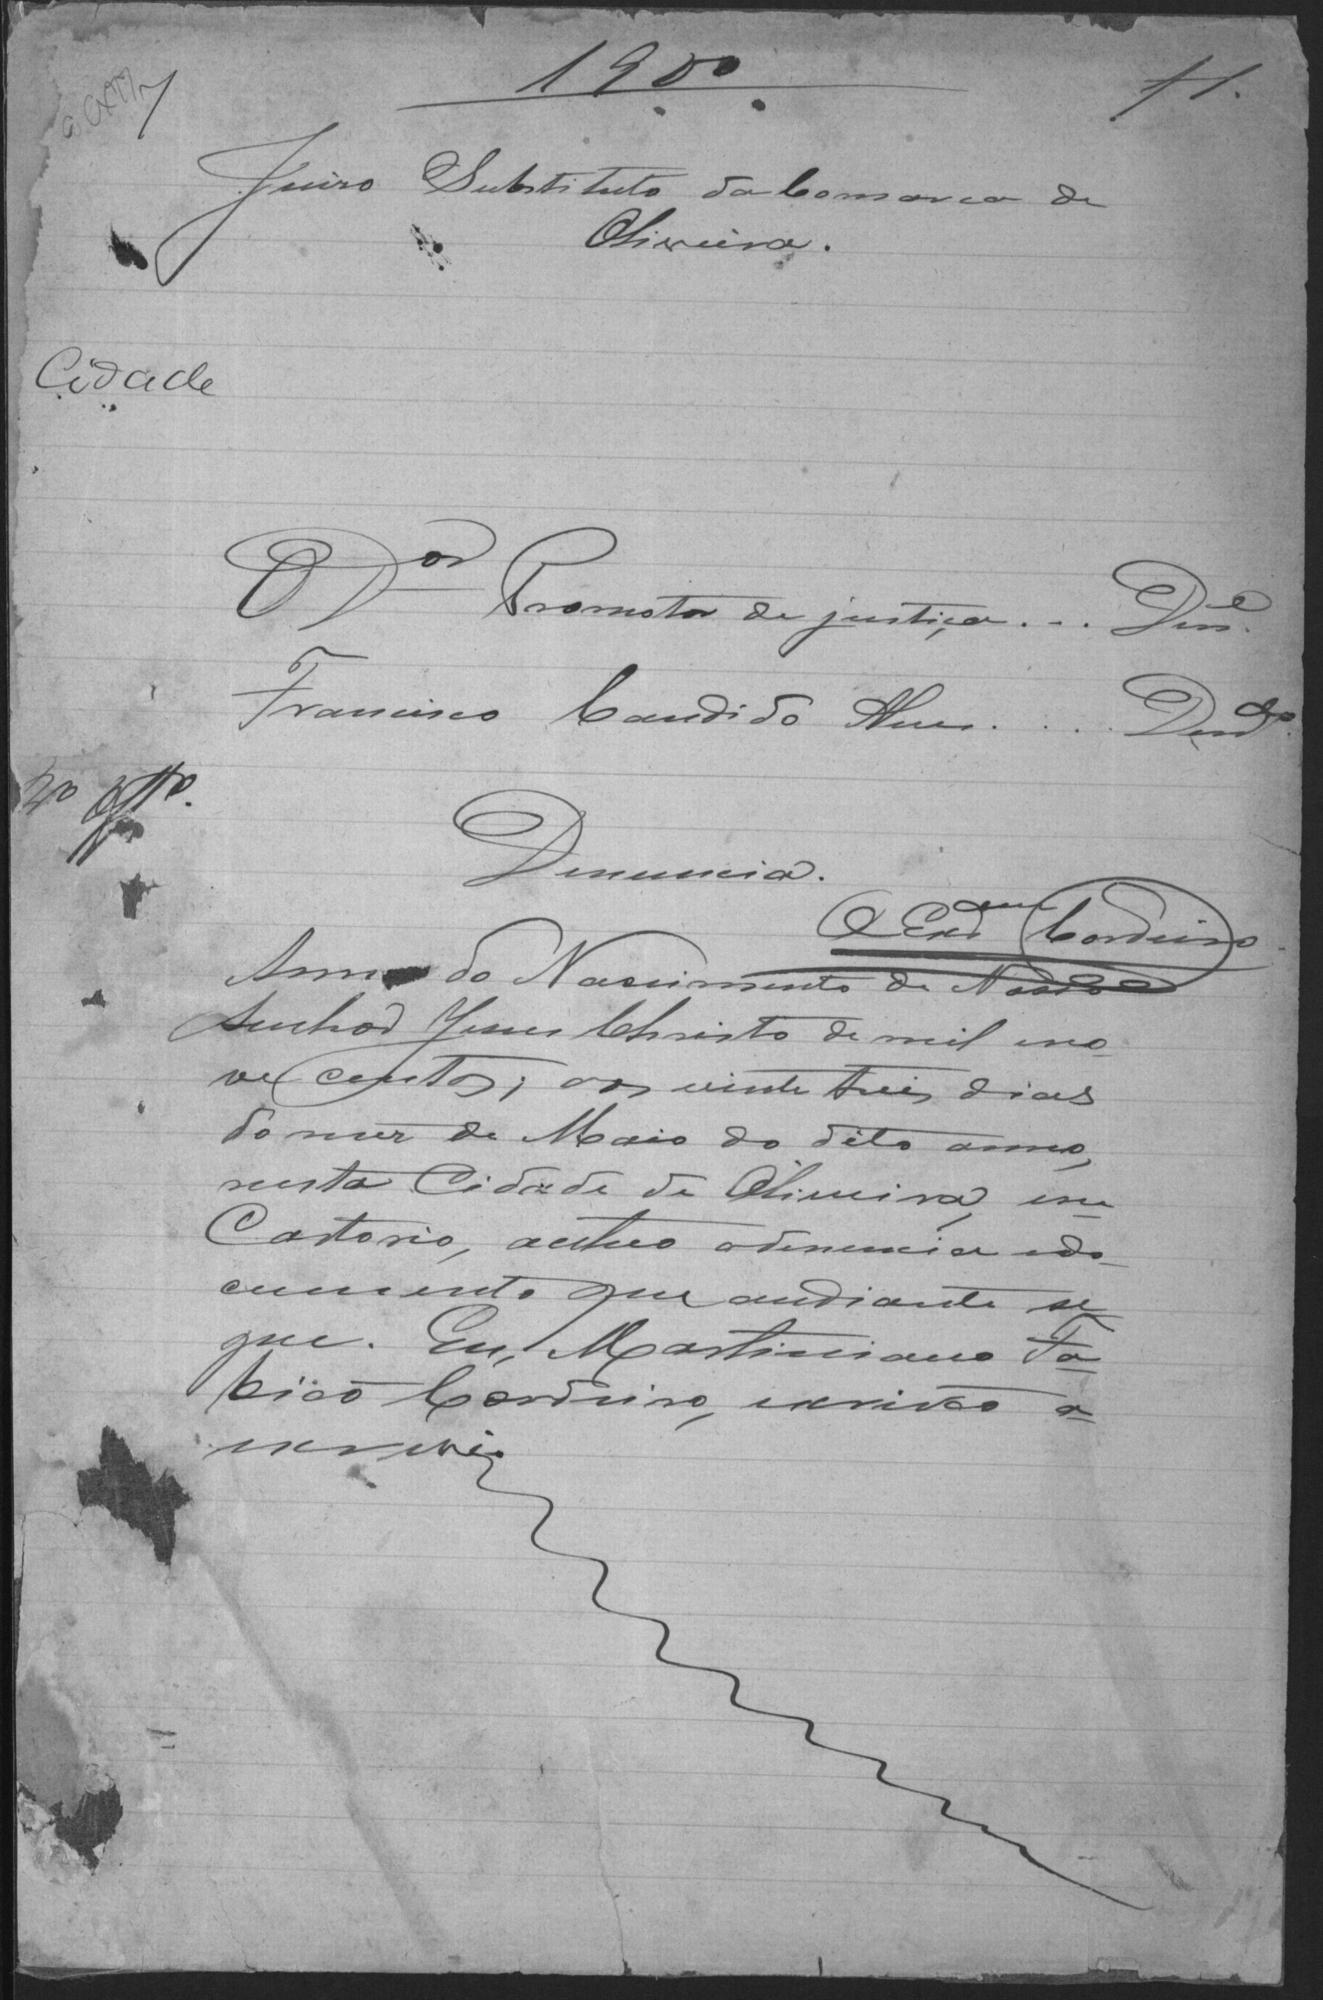 1900
f 1.
Juizo Substituto da Comarca de
Oliveira.
Cidade
O Dor Promotor de justiça . . . Dene.
Francisco Candido Alves . . . . Dendo.
2º Offº.
Denuncia.
O Escram Cordeiro
Anno do Nascimento de Nosso
Senhor Jesus Christo de mil no-
ve centos; aos vinte treis dias
do mez de Maio do dito anno,
nesta Cidade de Oliveira, em
Cartorio, autuo a denuncia e do-
cumento que andiante se
gue. Eu, Martiniano Fa-
bião Cordeiro, escrivão o
escrevi.